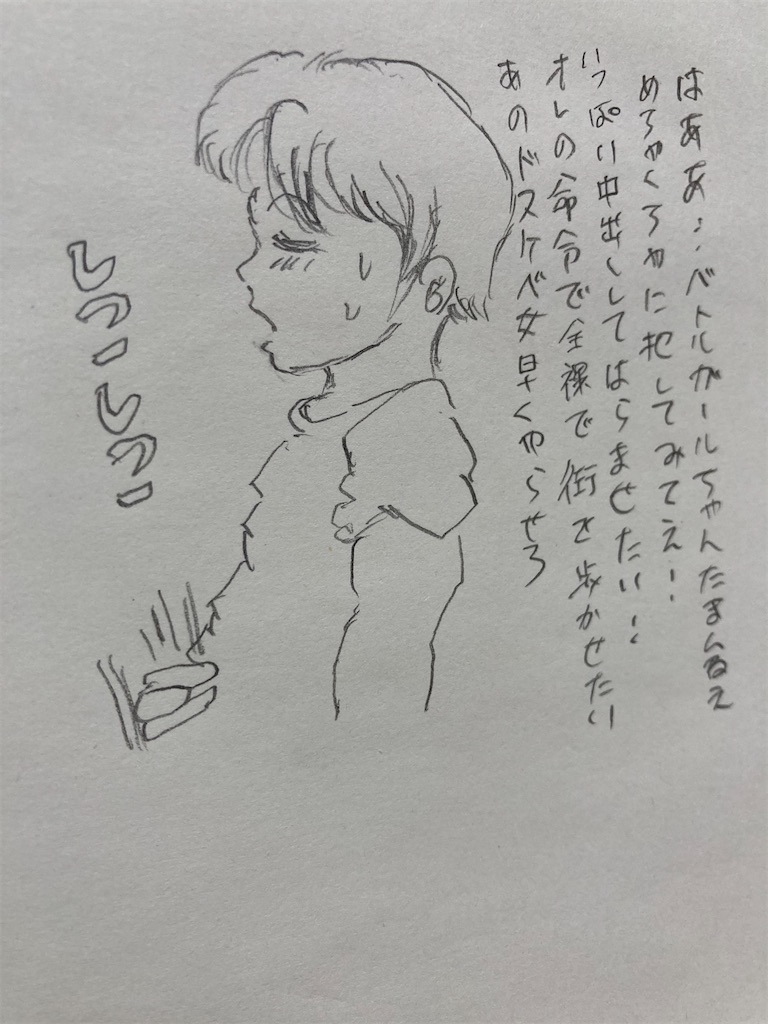 はああ…バトルガールちゃんたまんねえ
めちゃくちゃに犯してみてえ!
いっぱい中出ししてはらませたい!
オレの命令で全裸で街を歩かせたい
あのドスケベ女早くやらせろ
しこしこ